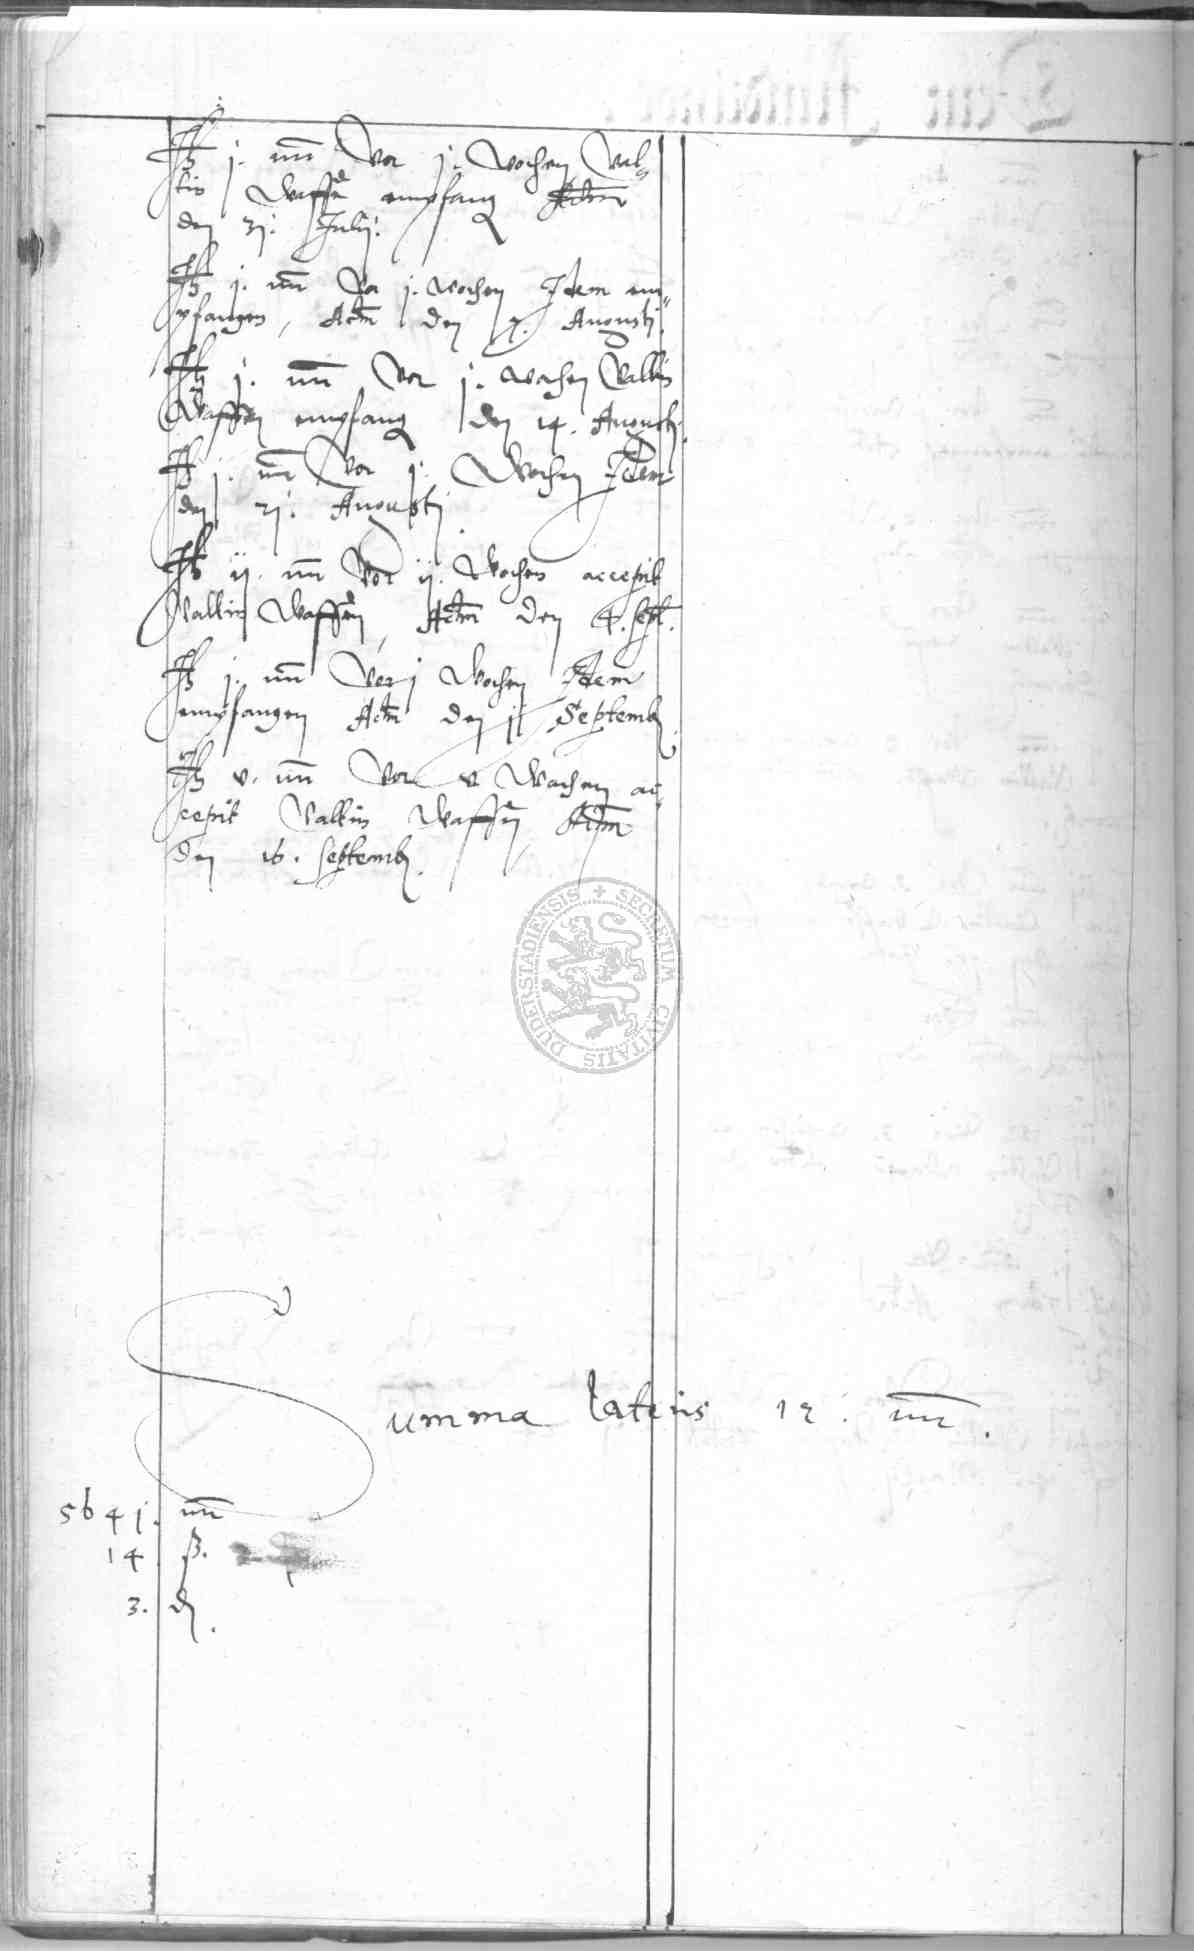 It j. mr vor j. wochen Val-
tin Waffen empfang Actum
den 31. Julij.
It j. mr vor j. wochen Idem em-
pfangen, Actum den 7. Augusti
It j. mr vor j. wochen Valtin
Waffen empfang den 14. Augusti.
It j. mr vor j. Wochen Idem
den 21. Augusti.
It ij. mr vor ij. Wochen accepit
Valtin Waffen, Actum den 4. Sept.
It j. mr vor j Wochen Idem
empfangen Actum den 11 Septemb.
It v. mr vor v Wochen ac-
cepit Valtin Waffen, Actum
den 16. Septemb.
SECRETUM CIVITATIS DUDERSTADIENSIS
Summa lateris 12. mr.
5641. mr
14 ß.
3. d.